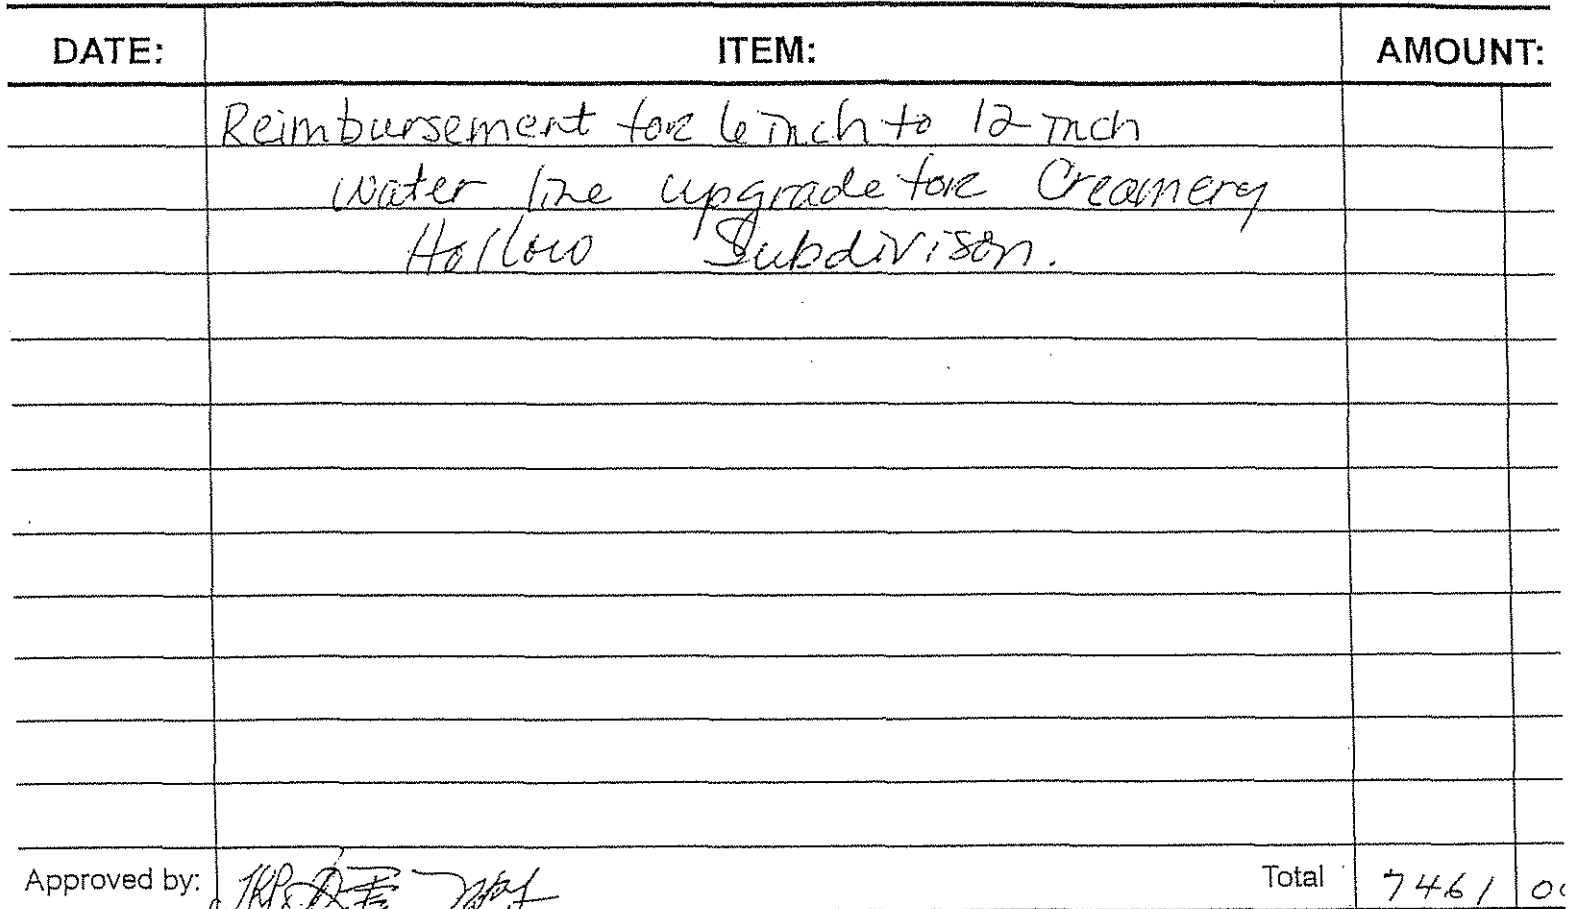 DATE: ITEM: AMOUNT:
Reimbursement for 6 inch to 12 inch
water line upgrade for Creamery
Hollow Subdivison.
Approved by: Total 7461